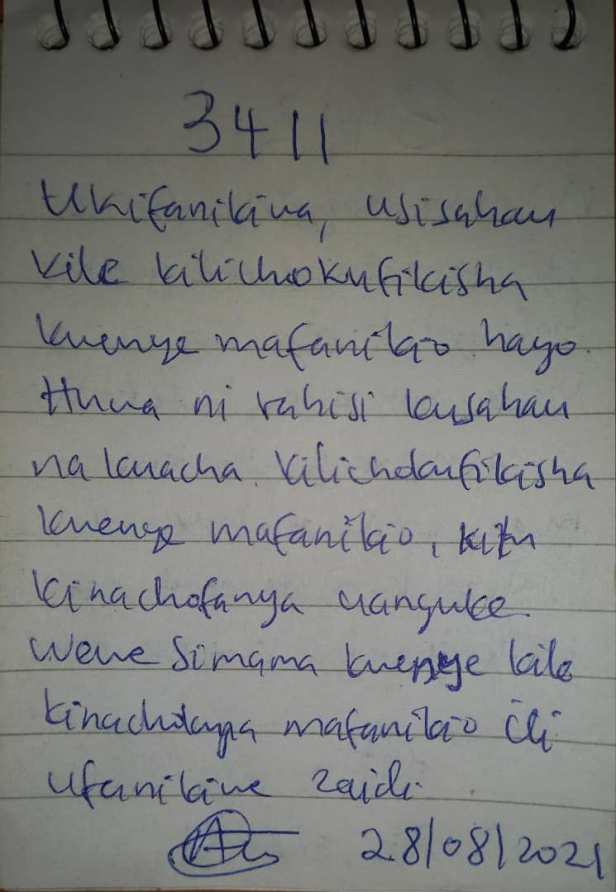 3411
Ukifanikiwa, usisahau
kile kilichokufikisha
kwenye mafanikio hayo.
Huwa ni rahisi kusahau
na kuacha kilichokufikisha
kwenye mafanikio, kitu
kinachofanya uanguke.
Wewe simama kwenye kile
kinachokupa mafanikio ili
ufanikiwe zaidi.
28/08/2021